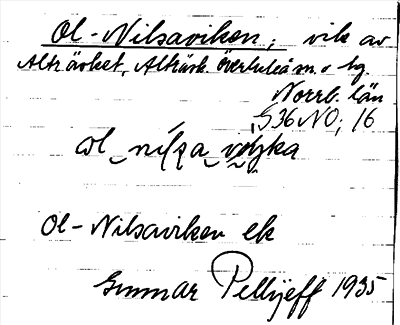 Ol-Nilsaviken; vik av
Altträsket, Altträsk. Överluleå sn. o tg.
Norrb. län
S36NO; 16
Ol-Nilsaviken ek
Gunnar Pellijeff 1935